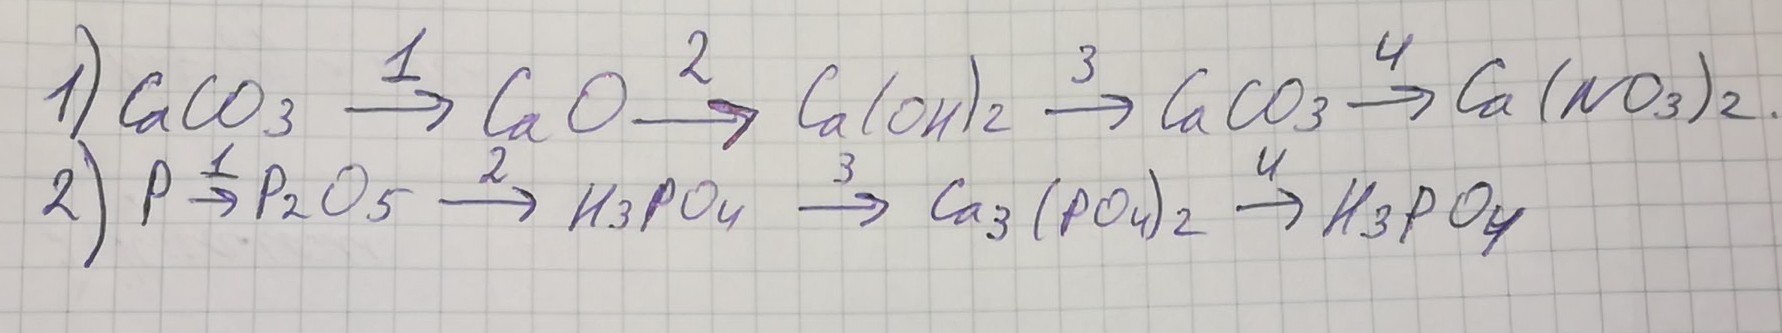 1) CaCO3 1→ CaO 2→ Ca(OH)2 3→ CaCO3 4→ Ca(NO3)2.
2) P 1→ P2O5 2→ H3PO4 3→ Ca3(PO4)2 4→ H3PO4